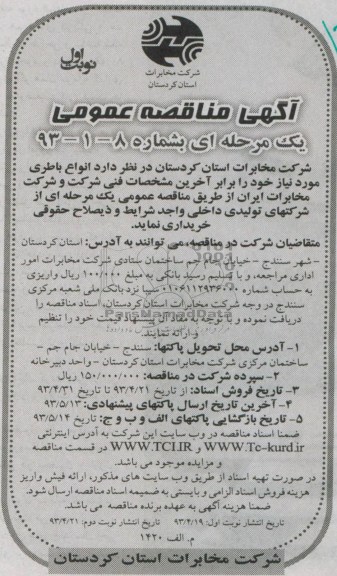 شرکت مخابرات
استان کردستان
نوبت اول
آگهی مناقصه عمومی
یک مرحله ای بشماره ۸-۱-۹۳
شرکت مخابرات استان کردستان در نظر دارد انواع باطری
مورد نیاز خود را برابر آخرین مشخصات فنی شرکت و شرکت
مخابرات ایران از طریق مناقصه عمومی یک مرحله ای از
شرکتهای تولیدی داخلی واجد شرایط و ذیصلاح حقوقی
خریداری نماید.
متقاضیان شرکت در مناقصه، می توانند به آدرس: استان کردستان
- شهر سنندج - خیابان جام جم ساختمان ستادی شرکت مخابرات امور
اداری مراجعه، و با تسلیم رسید بانکی به مبلغ ۱۰۰/۰۰۰ ریال واریزی
به حساب شماره سیبا نزد بانک ملی شعبه مرکزی
سنندج در وجه شرکت مخابرات استان کردستان، اسناد مناقصه را
دریافت نموده و با توجه به مفاد آن خود را تنظیم
و ارائه نمایند.
۱- آدرس محل تحویل پاکتها: سنندج - خیابان جام جم -
ساختمان مرکزی شرکت مخابرات استان کردستان - واحد دبیرخانه
۲- سپرده شرکت در مناقصه: ۱۵۰/۰۰۰/۰۰۰ ریال
۳- تاریخ فروش اسناد: از تاریخ ۹۳/۴/۲۱ تا تاریخ ۹۳/۴/۳۱
۴- آخرین تاریخ ارسال پاکتهای پیشنهادی: ۹۳/۵/۱۳
۵- تاریخ بازگشایی پاکتهای الف و ب و ج: تاریخ ۹۳/۵/۱۴
ضمنا اسناد مناقصه در وب سایت این شرکت به آدرس اینترنتی
WWW.Tc-kurd.ir و WWW.TCI.IR در قسمت مناقصه
و مزایده موجود می باشد.
در صورت تهیه اسناد از طریق وب سایت های مذکور، ارائه فیش واریز
هزینه فروش اسناد الزامی و بایستی به ضمیمه اسناد مناقصه ارسال شود.
ضمنا هزینه آگهی به عهده برنده مناقصه می باشد.
تاریخ انتشار نوبت اول: ۹۳/۴/۱۹ تاریخ انتشار نوبت دوم: ۹۳/۴/۲۱
م. الف ۱۴۲۰
شرکت مخابرات استان کردستان